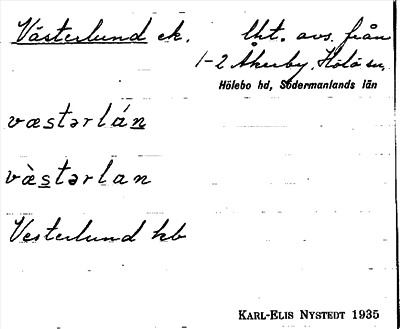 Västerlund ek. lht. avs. från
1-2 Åkerby, Hölö sn,
Hölebo hd, Södermanlands län
væstərlán
vὲstərlan
Vesterlund kb
KARL-ELIS NYSTEDT 1935